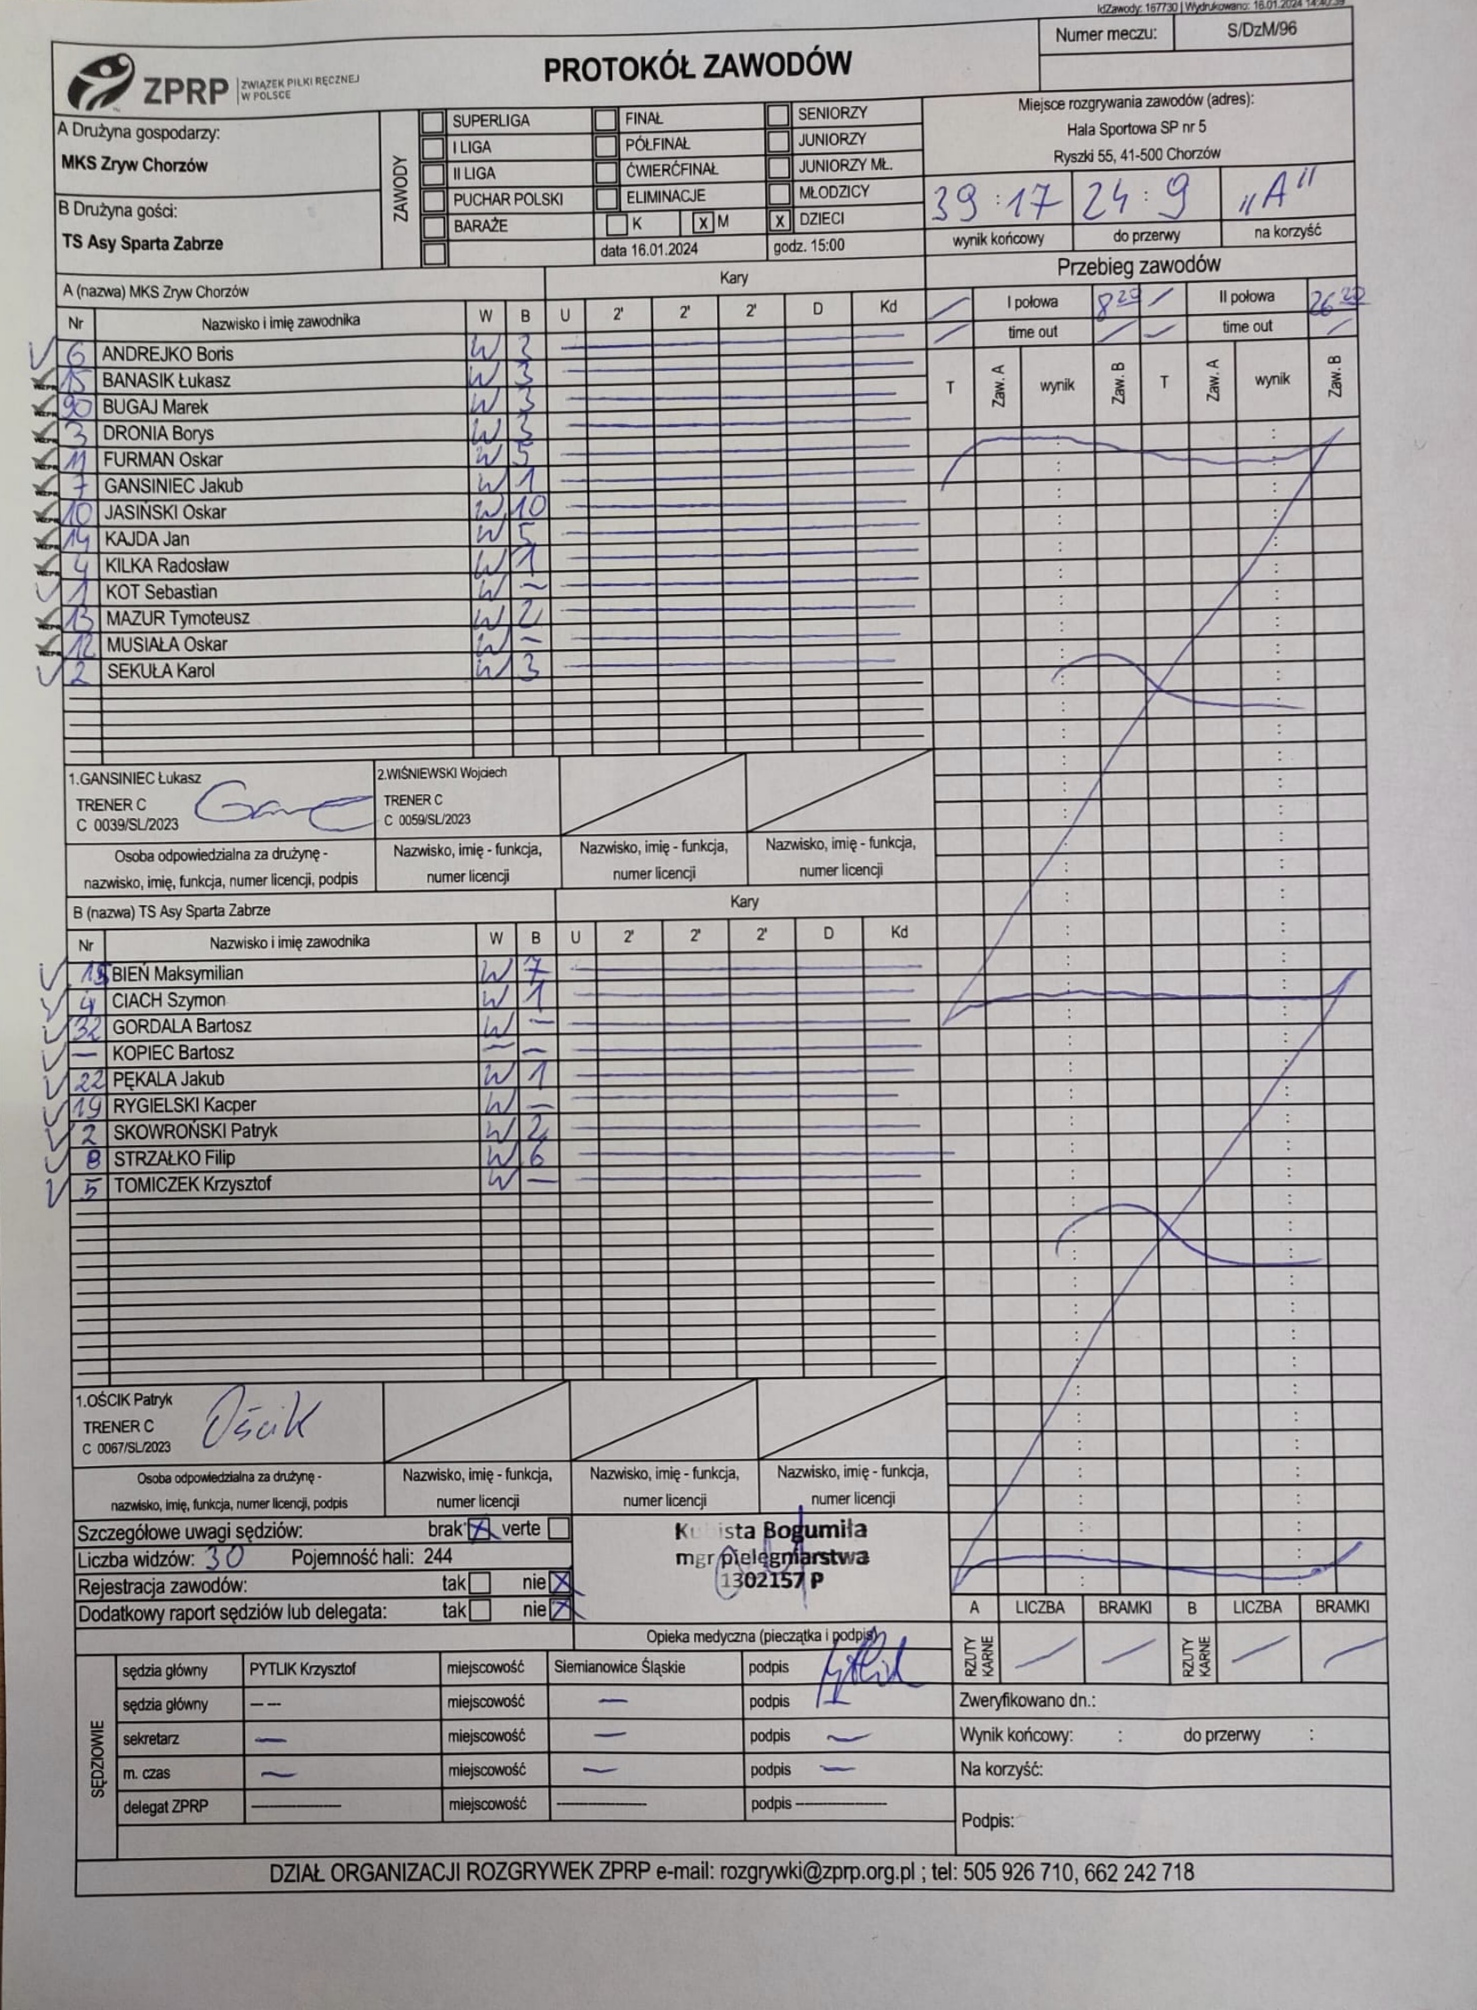 IdZawody: 167730 | Wydrukowano: 16.01.2024 14:40:39
Numer meczu: S/DzM/96
ZPRP ZWIĄZEK PIŁKI RĘCZNEJ
W POLSCE
PROTOKÓŁ ZAWODÓW
A Drużyna gospodarzy:
MKS Zryw Chorzów
B Drużyna gości:
TS Asy Sparta Zabrze
ZAWODY
SUPERLIGA FINAŁ SENIORZY
I LIGA PÓŁFINAŁ JUNIORZY
II LIGA ĆWIERĆFINAŁ JUNIORZY MŁ.
PUCHAR POLSKI ELIMINACJE MŁODZICY
BARAŻE K X M X DZIECI
data 16.01.2024 godz. 15:00
Miejsce rozgrywania zawodów (adres):
Hala Sportowa SP nr 5
Ryszki 55, 41-500 Chorzów
39:17 24:9 „A"
wynik końcowy do przerwy na korzyść
A (nazwa) MKS Zryw Chorzów Kary
Nr Nazwisko i imię zawodnika W B U 2' 2' 2' D Kd
6 ANDREJKO Boris W 3
15 BANASIK Łukasz W 3
90 BUGAJ Marek W 3
3 DRONIA Borys W 3
11 FURMAN Oskar W 5
7 GANSINIEC Jakub W 1
10 JASIŃSKI Oskar W 10
14 KAJDA Jan W 5
4 KILKA Radosław W 1
1 KOT Sebastian W —
13 MAZUR Tymoteusz W 2
12 MUSIAŁA Oskar W —
2 SEKUŁA Karol W 3
Przebieg zawodów
I połowa 8 20 II połowa 26 20
time out time out
T Zaw. A wynik Zaw. B T Zaw. A wynik Zaw. B
1.GANSINIEC Łukasz 2.WIŚNIEWSKI Wojciech
TRENER C TRENER C
C 0039/SL/2023 C 0059/SL/2023
Osoba odpowiedzialna za drużynę - Nazwisko, imię - funkcja, Nazwisko, imię - funkcja, Nazwisko, imię - funkcja,
nazwisko, imię, funkcja, numer licencji, podpis numer licencji numer licencji numer licencji
B (nazwa) TS Asy Sparta Zabrze Kary
Nr Nazwisko i imię zawodnika W B U 2' 2' 2' D Kd
15 BIEŃ Maksymilian W 7
4 CIACH Szymon W 1
32 GORDALA Bartosz W —
— KOPIEC Bartosz — —
22 PĘKALA Jakub W 1
19 RYGIELSKI Kacper W —
2 SKOWROŃSKI Patryk W 2
8 STRZAŁKO Filip W 6
5 TOMICZEK Krzysztof W —
1.OŚCIK Patryk Ościk
TRENER C
C 0067/SL/2023
Osoba odpowiedzialna za drużynę - Nazwisko, imię - funkcja, Nazwisko, imię - funkcja, Nazwisko, imię - funkcja,
nazwisko, imię, funkcja, numer licencji, podpis numer licencji numer licencji numer licencji
Szczegółowe uwagi sędziów: brak X verte
Liczba widzów: 30 Pojemność hali: 244
Rejestracja zawodów: tak nie X
Dodatkowy raport sędziów lub delegata: tak nie X
Kubista Bogumiła
mgr pielęgniarstwa
1302157 P
Opieka medyczna (pieczątka i podpis)
A LICZBA BRAMKI B LICZBA BRAMKI
RZUTY KARNE RZUTY KARNE
SĘDZIOWIE
sędzia główny PYTLIK Krzysztof miejscowość Siemianowice Śląskie podpis
sędzia główny — — miejscowość — podpis
sekretarz — miejscowość — podpis —
m. czas — miejscowość — podpis —
delegat ZPRP ———— miejscowość ———— podpis ————
Zweryfikowano dn.:
Wynik końcowy: : do przerwy :
Na korzyść:
Podpis:
DZIAŁ ORGANIZACJI ROZGRYWEK ZPRP e-mail: rozgrywki@zprp.org.pl ; tel: 505 926 710, 662 242 718